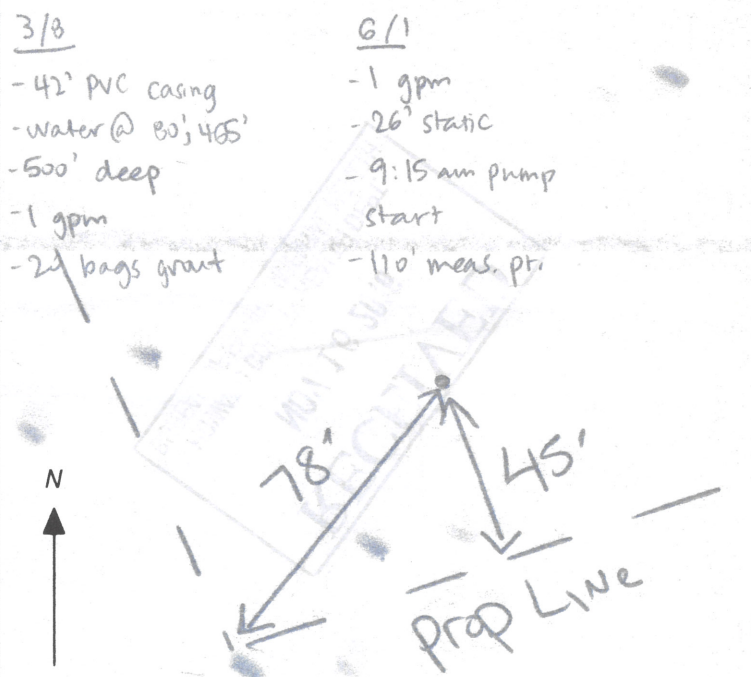 3/8
- 42' PVC casing
- water @ 80', 465'
- 500' deep
- 1 gpm
- bags grout
6/1
- 1 gpm
- 26' static
- 9:15 am pump
start
- 110' meas. pt.
78'
45'
N
prop LINe